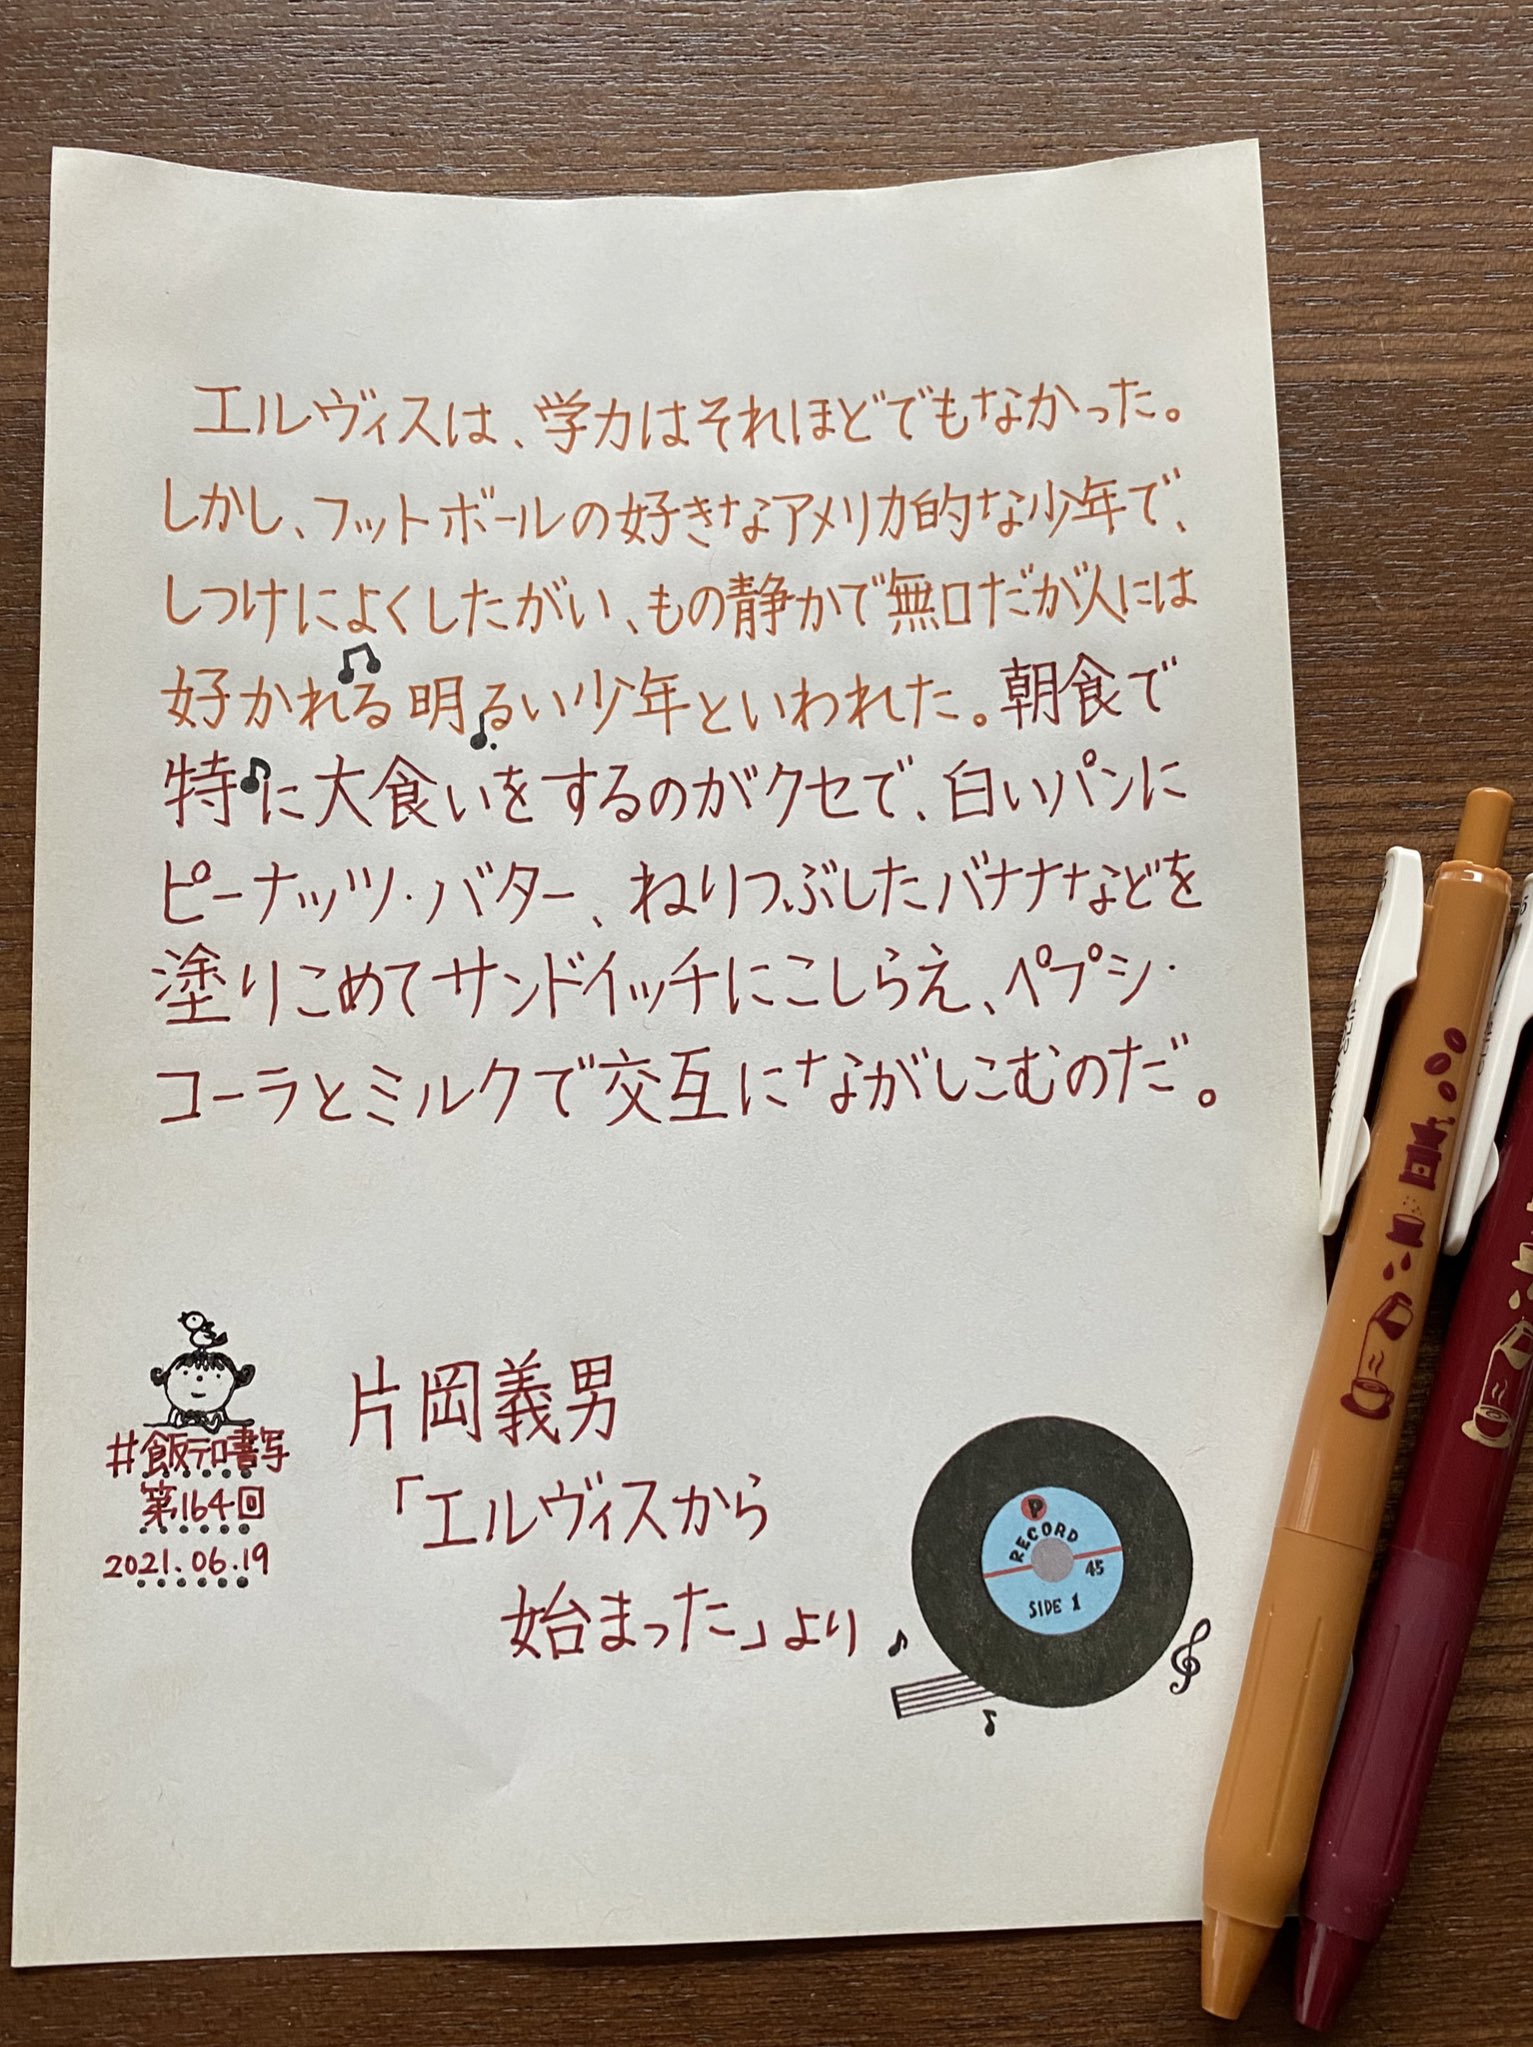 エルヴィスは、学力はそれほどでもなかった。
しかし、フットボールの好きなアメリカ的な少年で、
しつけによくしたがい、もの静かで無口だが人には
好かれる明るい少年といわれた。朝食で
特に大食いをするのがクセで、白いパンに
ピーナッツ・バター、ねりつぶしたバナナなどを
塗りこめてサンドイッチにこしらえ、ペプシ・
コーラとミルクで交互にながしこむのだ。
#飯テロ書写
第164回
2021.06.19
片岡義男
「エルヴィスから
始まった」より
P
RECORD
45
SIDE 1